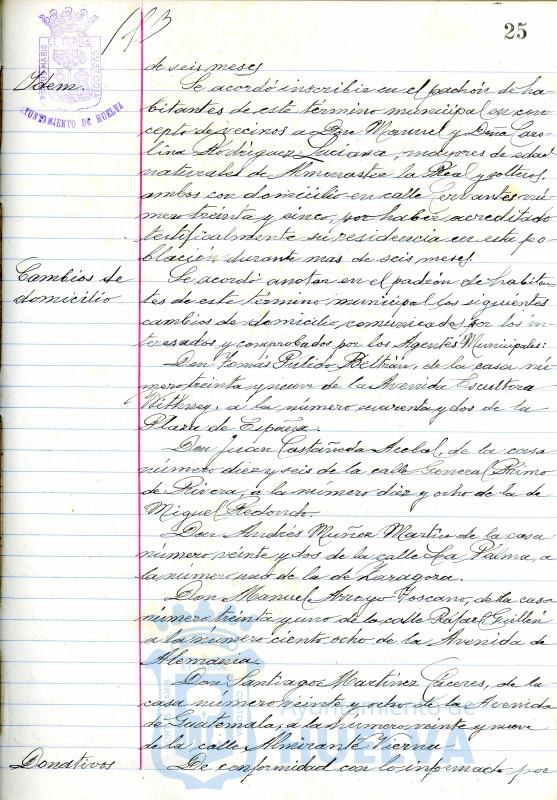 25
de seis meses
Idem.
Se acordó inscribir en el padrón de ha-
bitantes de este término municipal en con-
cepto de vecinos a Don Manuel y Dña Caro-
lina Rodriguez Luciana, mayores de edad
naturales de Almonaster la Real y solteros,
ambos con domicilio en calle Cervantes nú-
mero treinta y cinco, por haber acreditado
testificalmente su residencia en esta po-
blación durante mas de seis meses.
Cambios de
domicilio
Se acordó anotar en el padrón de habitan-
tes de este término municipal los siguientes
cambios de domicilio, comunicados por los in-
teresados y comprobados por los Agentes Municipales:
Don Tomás Pulido Beltrán, de la casa nú-
mero treinta y nueve de la Avenida Escultora
Withney, a la número cuarenta y dos de la
Plaza de España.
Don Juan Castañeda Acobal, de la casa
número diez y seis de la calle General Primo
de Rivera, a la número diez y ocho de la de
Miguel Redondo.
Don Andrés Muñoz Martín de la casa
número veinte y dos de la calle La Palma, a
la número uno de la de Zaragoza.
Don Manuel Arroyo Toscano, de la casa
número treinta y uno de la calle Rafael Guillén
a la número ciento ocho de la Avenida de
Alemania.
Don Santiago Martínez Cáceres, de la
casa número veinte y ocho de la Avenida
de Guatemala, a la número veinte y nueve
de la calle Almirante Vierna
Donativos
De conformidad con lo informado por
AYUNTAMIENTO DE HUELVA
Ayuntamiento de
HUELVA